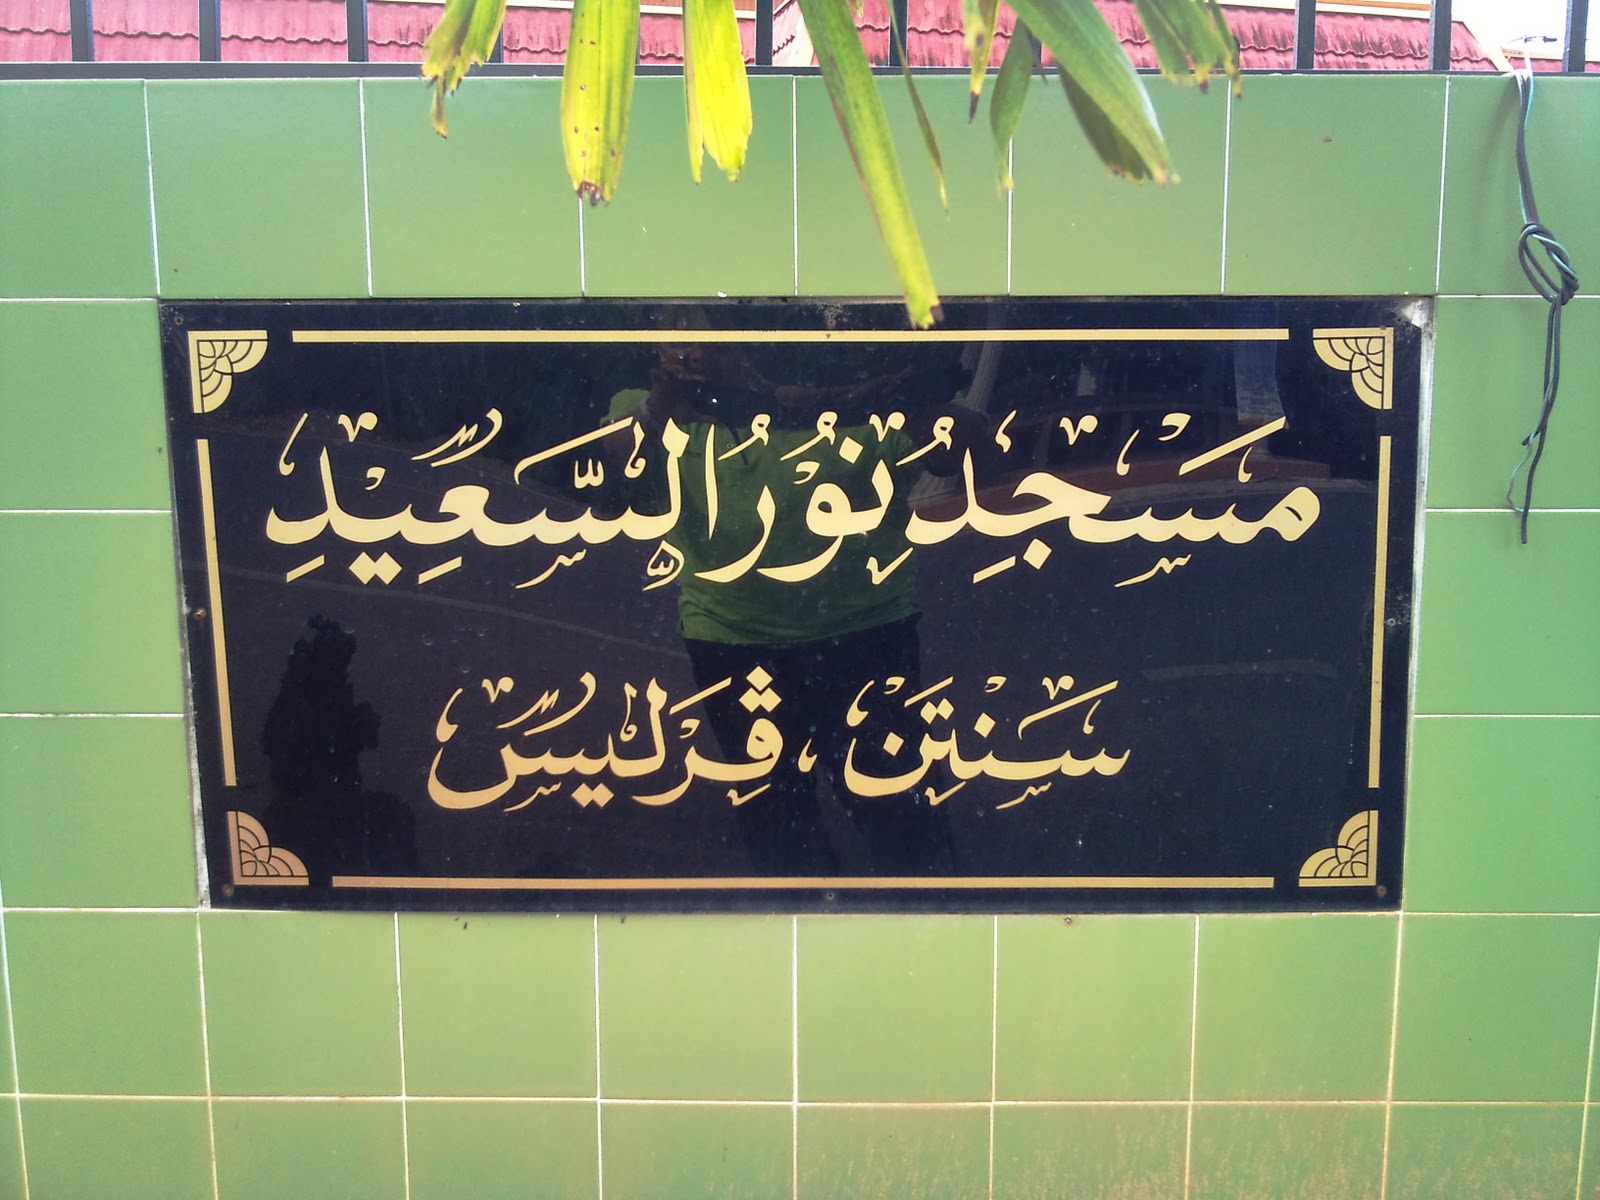 مَسْجِدِ نُوْرُ السَّعِيْدِ
سَنْتِنْ، ڤِرَليس